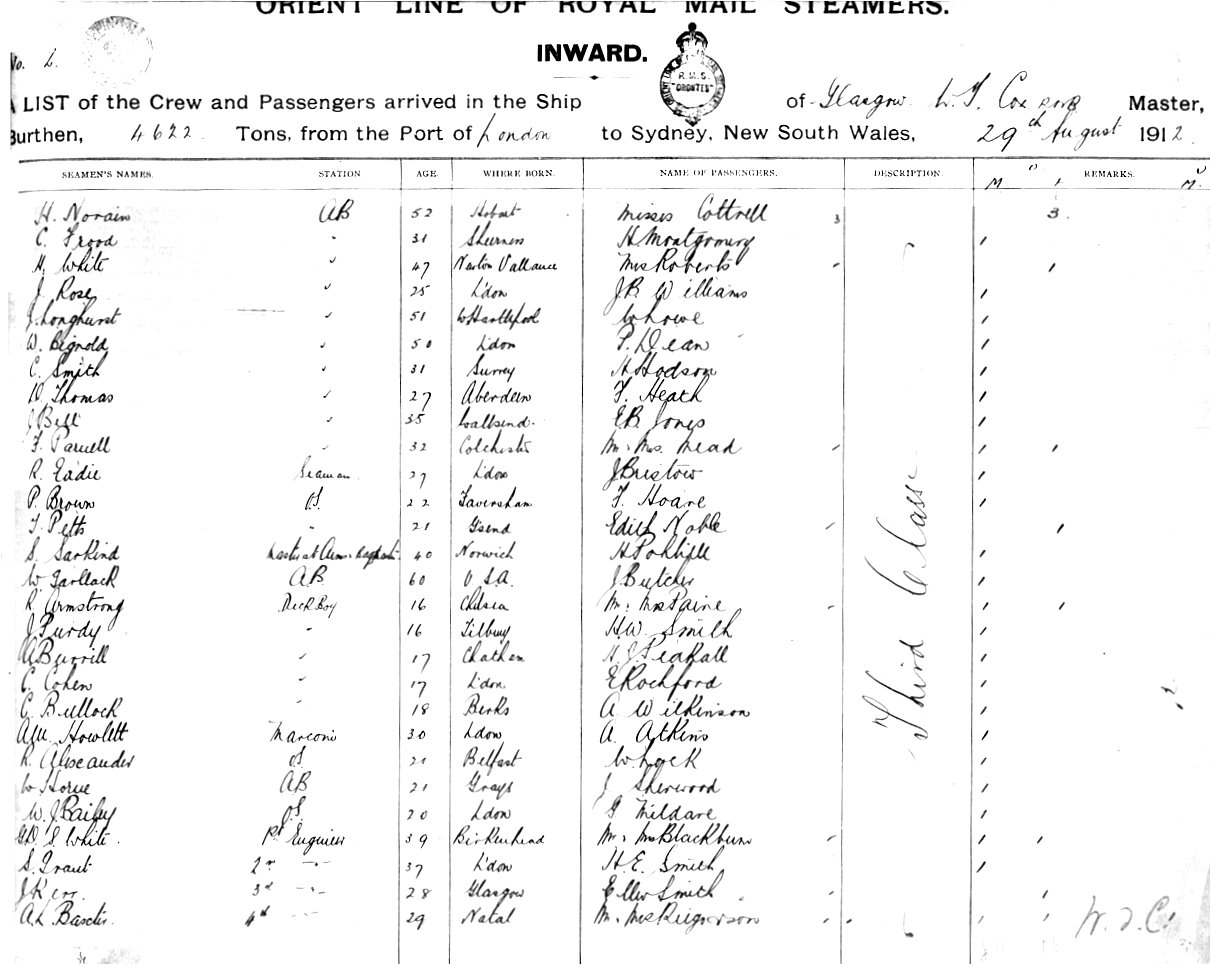 ORIENT LINE OF ROYAL MAIL STEAMERS.
No. 2.
INWARD.
R.M.S. "ORONTES"
A LIST of the Crew and Passengers arrived in the Ship of Glasgow W. J. Cox RNR Master,
Burthen, 4622 Tons, from the Port of London to Sydney, New South Wales, 29th August 1912.
SEAMEN'S NAMES. STATION AGE WHERE BORN. NAME OF PASSENGERS. DESCRIPTION REMARKS.
H. AB 52 Hobart Misses Cottrell 3 3.
C. Frood " 31 Sheerness H Montgomery
H. White " 47 Newton Vallance Mrs Roberts
J. Rose " 25 L'don J.R. Williams
J. Longhurst " 51 W Hartlepool W Lowe
W. Bignold " 50 L'don P. Dean
C. Smith " 31 Surrey H Hodson
D. Thomas " 27 Aberdeen F. Heath
J Bell " 35 Wallsend. E.B. Jones
F. Parnell " 32 Colchester Mr. Mrs. Mead
R. Eadie Seaman 27 L'don J Bristow
P. Brown O.S. 22 Faversham F. Hoare
T. Petts " 21 G'send Edith Noble
S. Master at Arms 40 Norwich H Polhill
W AB 60 U.S.A. J Butcher
R. Armstrong Deck Boy 16 Chelsea Mr. Mrs Paine
J Purdy " 16 Tilbury H.W. Smith
A Burrill " 17 Chatham H. J Peakall
C. Cohen " 17 L'don E Rochford
C. Bullock " 18 Berks A Wilkinson
A.W. Howlett Marconi 30 L'don A. Atkins
R. Alexander O.S. 21 Belfast W Lock
W Horne AB 21 Grays J Sherwood
W. J. Bailey O.S. 20 L'don G Mildare
G.D. S. White 1st Engineer 39 Birkenhead Mr. Mrs Blackburn
S. Grant 2nd " 37 L'don H.E. Smith
J Kerr 3rd " 28 Glasgow Ellen Smith
A L Baxter 4th " 29 Natal Mr. Mrs
Third Class
W.J.C.